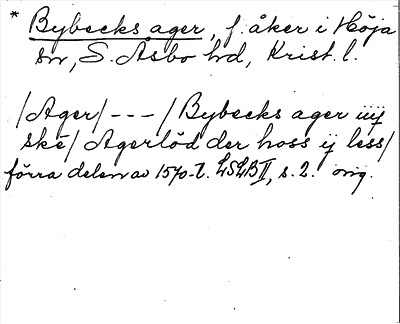 * Bybecks ager, f. åker i Höja
sn, S. Åsbo hd, Krist. l.
/Ager/ - - - / Bybecks ager iiij
ske/ Agerlöd der hoss ij less/
förra delen av 1570-t. LSLB II, s. 2. orig.